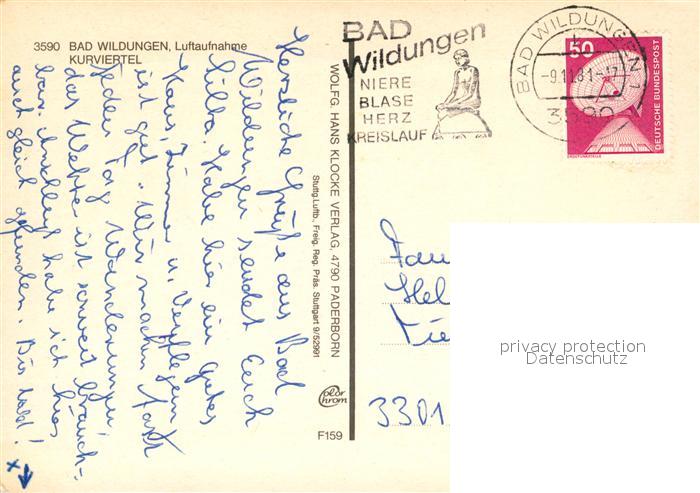 3590 BAD WILDUNGEN, Luftaufnahme
KURVIERTEL
Herzliche Grüße aus Bad
Wildungen sendet Euch
Habe hier ein gutes
Haus, Zimmer u. Verpflegung
ist gut. Wir machen fast
jeden Tag Wanderungen
das Wetter ist soweit brauch-
bar. Anschluß habe ich hier
auch gleich gefunden. Bis bald!
WOLFG. HANS KLOCKE VERLAG, 4790 PADERBORN
Stuttg. Luftb., Freig. Reg. Präs. Stuttgart 9/52991
color
chrom
F159
BAD
Wildungen
NIERE
BLASE
HERZ
KREISLAUF
BAD WILDUNGEN 1
-9.11.81-17
3590
50
DEUTSCHE BUNDESPOST
ERDFUNKSTELLE
Fam
Hel
3301
privacy protection
Datenschutz